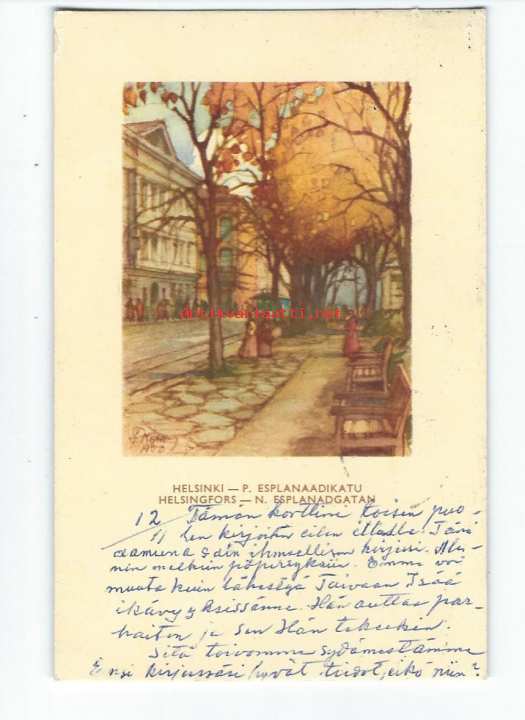 HELSINKI — P. ESPLANAADIKATU
HELSINGFORS — N. ESPLANADGATAN
12 Tämän korttini toisen puo-
11 len kirjoitin eilen illalla. Tänä
aamuna sain ihmeellisen kirjeesi.
melkein Emme voi
muuta kuin lähestyä Taivaan Isää
ikävyyksissänne. Hän auttaa par-
haiten ja sen Hän tekeekin.
Sitä toivomme sydämestämme
Ensi kirjeessäsi hyvät tiedot, eikö niin?